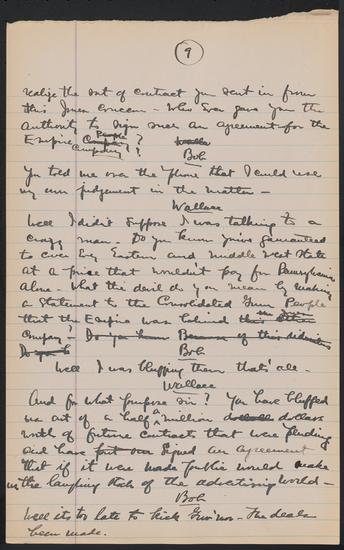 9
realize the sort of contract you sent in from
this Jones concern - Who ever gave you the
authority to sign such an agreement for the
Empire People
Company?
Bob
You told me over the 'phone that I could use
my own judgement in the matter -
Wallace
Well I didn't suppose I was talking to a
crazy man - Do you know you've guaranteed
to cover Every Eastern and Middle West State
at a price that wouldn't pay for Pennsylvania
alone - What the devil do you mean by making
a statement to the Consolidated Gum People
that the Empire was behind
Company - Do you know Because of this
Do you
Bob
Well I was bluffing them that's all -
Wallace
And for what purpose Sir? You have bluffed
us out of a half a million dollars
worth of future contracts that were pending
and have signed an agreement
that if it were made public would make
us the laughing stock of the advertising world -
Bob
Well it's too late to kick Guv'nor - The deals
been made.